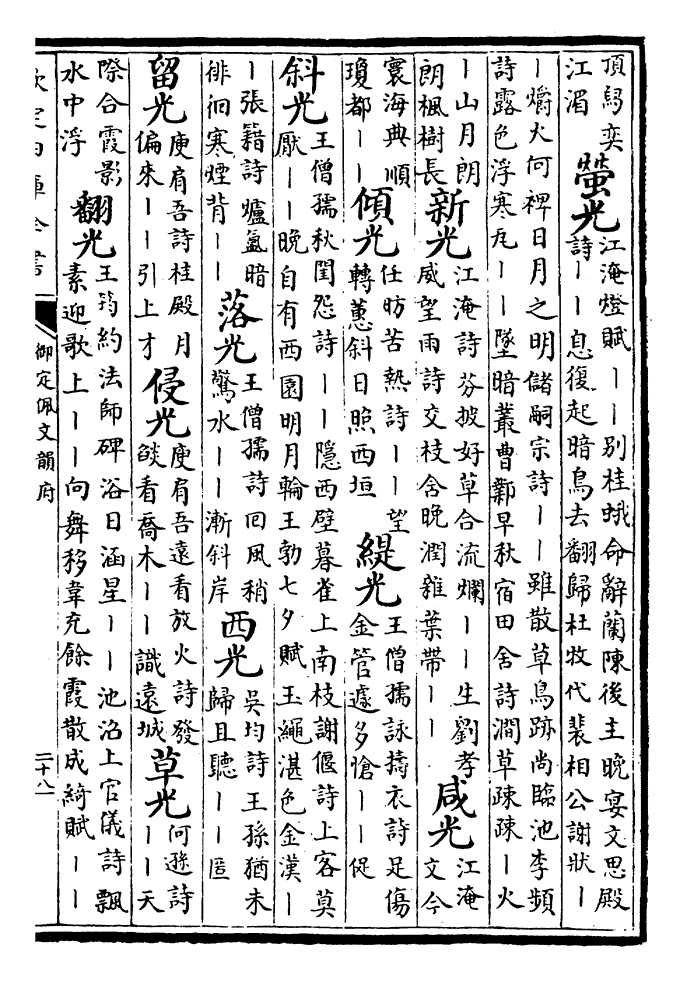 頂舄奕
江湄
螢光
江淹燈賦丨丨别桂蛾命辭蘭陳後主晚宴文思殿
詩丨丨息復起暗鳥去翻歸杜牧代裴相公謝狀丨
丨爝火何裨日月之明儲嗣宗詩丨丨雖散草鳥跡尚臨池李頻
詩露色浮寒瓦丨丨墜暗叢曹鄴早秋宿田舍詩澗草疎疎丨火
丨山月朗
朗楓樹長
新光
江淹詩芬披好草合流爛丨丨生劉孝
威望雨詩交枝含晚潤雜葉帶丨丨
咸光
江淹
文今
寰海典順
瓊都丨丨
傾光
任昉苦熱詩丨丨望
轉蕙斜日照西垣
緹光
王僧孺詠擣衣詩足傷
金管遽多愴丨丨促
斜光
王僧孺秋閨怨詩丨丨隱西壁暮雀上南枝謝偃詩上客莫
厭丨丨晚自有西園明月輪王勃七夕賦玉繩湛色金漢丨
丨張籍詩爐氣暗
徘徊寒煙背丨丨
落光
王僧孺詩回風稍
驚水丨丨漸斜岸
西光
吳均詩王孫猶未
歸且聽丨丨匿
留光
庾肩吾詩桂殿月
偏來丨丨引上才
侵光
庾肩吾遠看放火詩發
燄看喬木丨丨識遠城
草光
何遜詩
丨丨天
際合霞影
水中浮
翻光
王筠約法師碑浴日涵星丨丨池沼上官儀詩飄
素迎歌上丨丨向舞移韋充餘霞散成綺賦丨丨
欽定四庫全書
御定佩文韻府
二十八